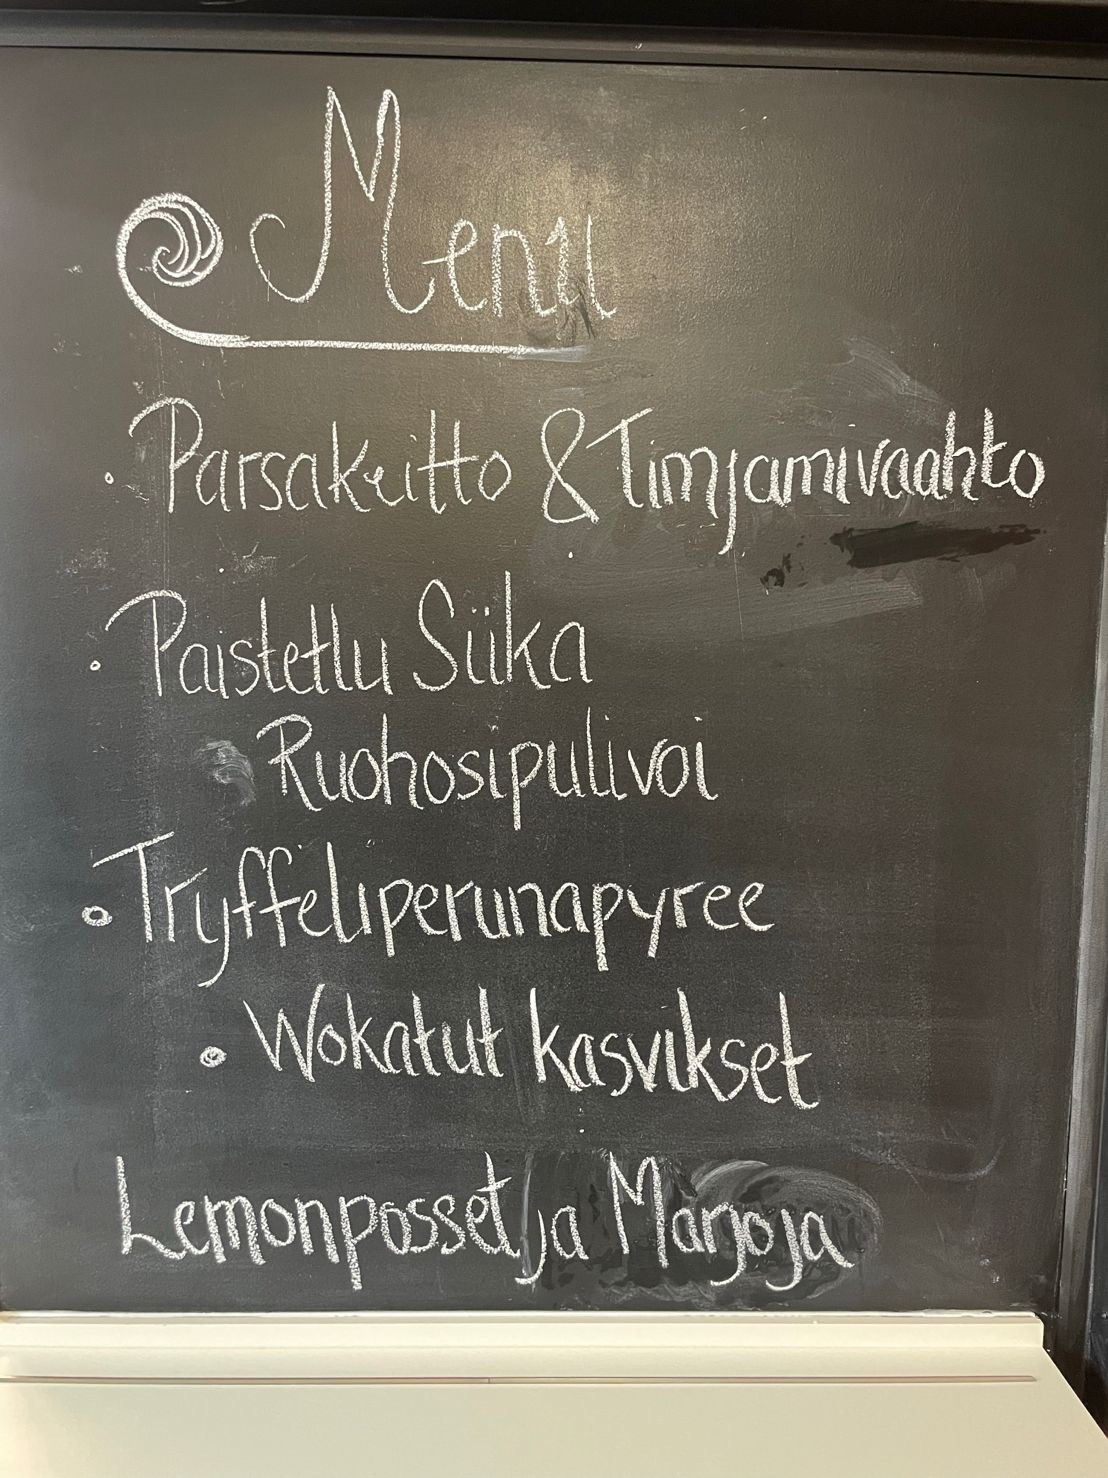 Menu
· Parsakeitto & Timjamivaahto
· Paistettu Siika
Ruohosipulivoi
· Tryffeliperunapyree
· Wokatut kasvikset
Lemonposset ja Marjoja